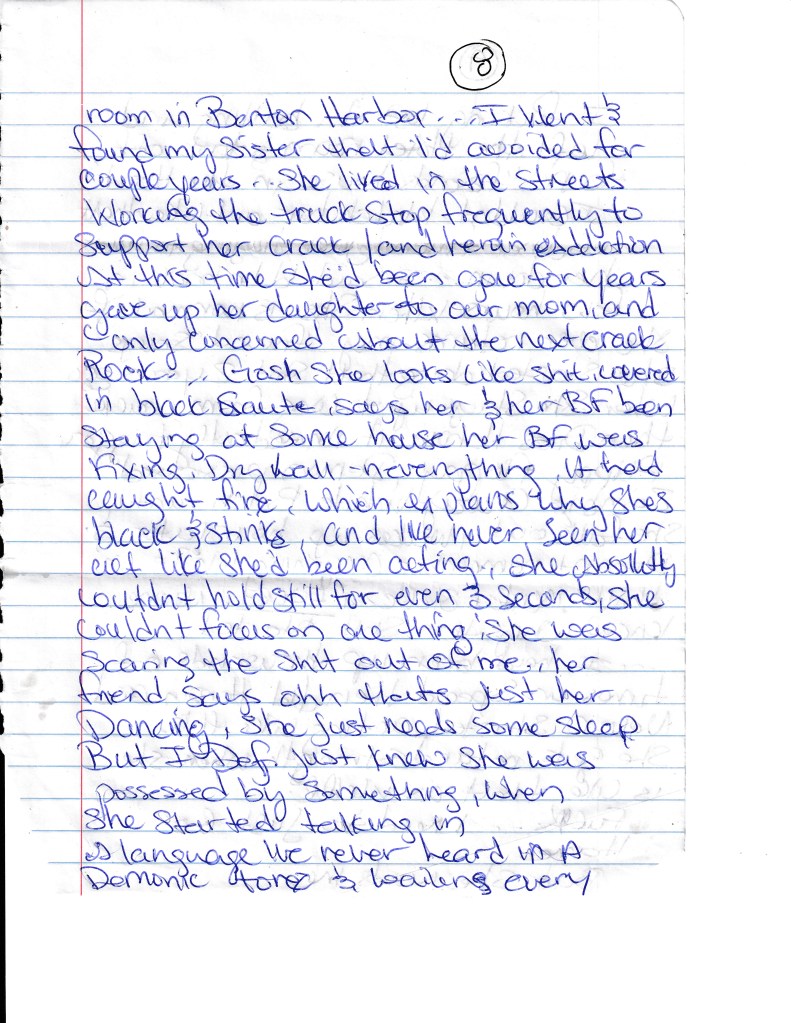 8
room in Benton Harbor... I went &
found my Sister that I'd avoided for
couple years.. She lived in the Streets
Working the truck Stop frequently to
Support her Crack / and heroin addiction
At this time She'd been gone for years
gave up her daughter to our mom, and
only concerned about the next crack
Rock... Gosh She looks like shit, covered
in black Saute, says her & her BF been
Staying at Some house her BF was
Fixing, Drywall -neverything, it had
caught fire, Which explains why she's
black & Stinks, and Ive never Seen her
act like She'd been acting, She Absolutly
Couldnt hold still for even 3 Seconds, She
Couldnt focus on one thing, She was
Scaring the Shit out of me., her
friend Says ohh thats just her
Dancing, She just needs some sleep
But I Def. just knew She was
possessed by Something, When
She Started talking in
A language Ive never heard in A
Demonic tone & every